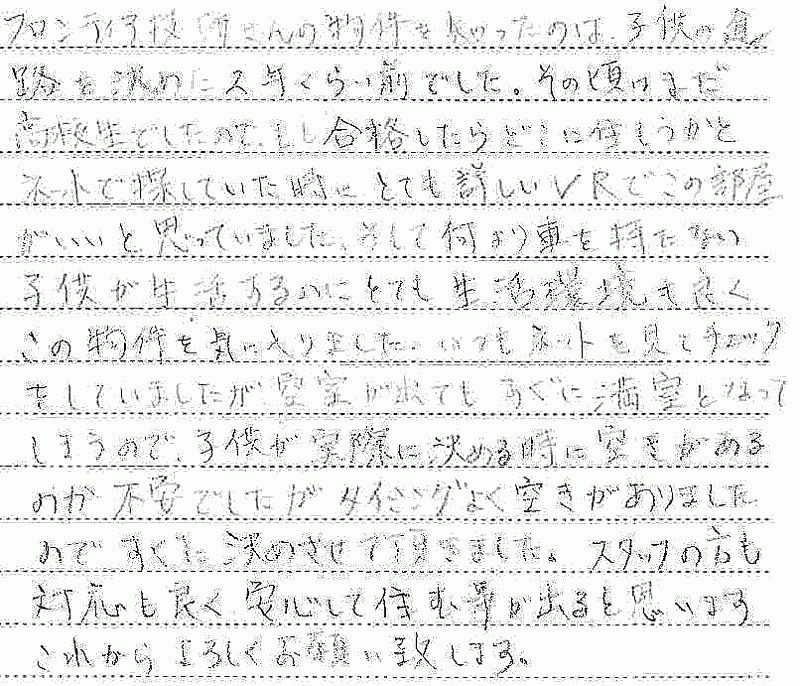 フロンティア技研さんの物件を知ったのは、子供の進
路を決めた2年くらい前でした。その頃はまだ
高校生でしたので、もし合格したらどこに住もうかと
ネットで探していた時に とても詳しいVRでこの部屋
がいいと思っていました、そして何より車を持たない
子供が生活するのにとても生活環境も良く
この物件を気に入りました。いつもネットを見てチェック
をしていましたが、空室が出てもすぐに満室となって
しまうので、子供が実際に決める時に空きがある
のか不安でしたが タイミングよく空きがありました
のですぐに決めさせて頂きました。スタッフの方も
対応も良く安心して住む事が出ると思います
これからよろしくお願い致します。